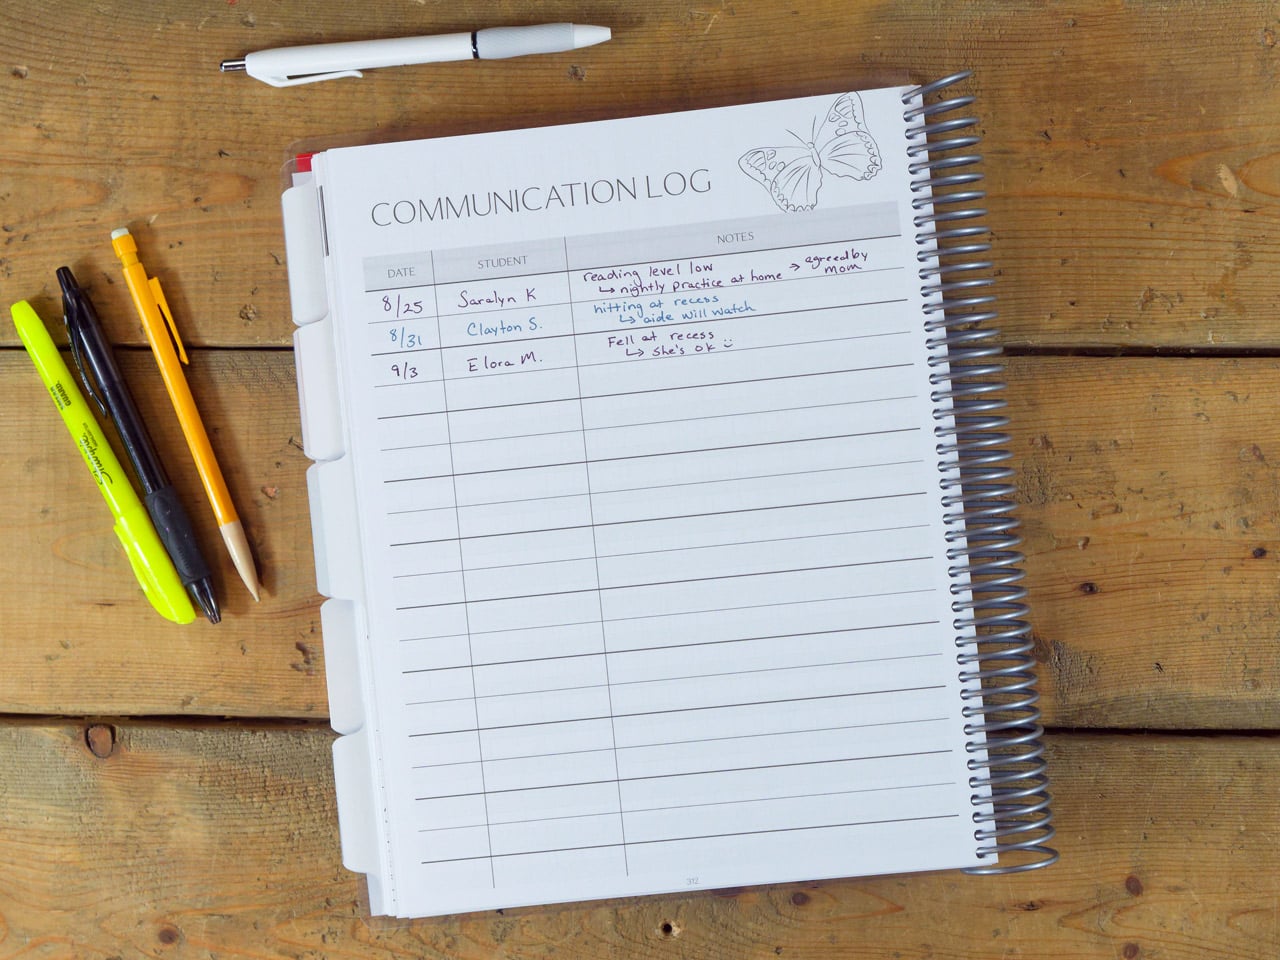 COMMUNICATION LOG
DATE STUDENT NOTES
8/25 Saralyn K reading level low
↳ nightly practice at home → agreed by mom
8/31 Clayton S. hitting at recess
↳ aide will watch
9/3 Elora M. Fell at recess
↳ she's ok :)
312
GUARD.
Sharpie